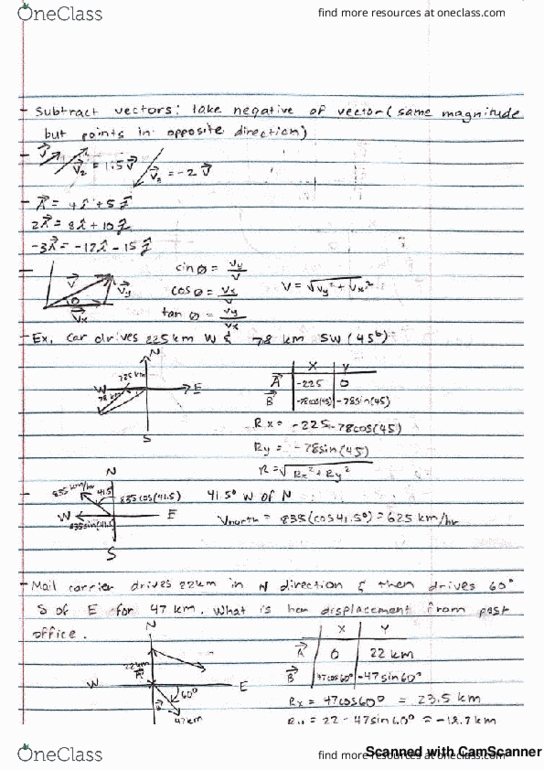 OneClass
find more resources at oneclass.com
- Subtract vectors: take negative of vector (same magnitude
but points in opposite direction)
- V⃗ V⃗₂ = 1.5 V⃗ V⃗₃ = -2 V⃗
- A⃗ = 4x̂ + 5ŷ
2A⃗ = 8x̂ + 10ŷ
-3A⃗ = -12x̂ - 15ŷ
- V⃗ V⃗y V⃗x θ
sin θ = Vy/V
cos θ = Vx/V V = √Vy² + Vx²
tan θ = Vy/Vx
- Ex. Car drives 225 km W & 78 km SW (45°)
N
225 km
78 km
W E
S
X Y
A⃗ -225 0
B⃗ -78cos(45) -78sin(45)
Rx = -225 - 78cos(45)
Ry = -78sin(45)
R = √Rx² + Ry²
- N
835 km/hr 41.5 835cos(41.5) 41.5° W of N
W E
835sin(41.5)
Vnorth = 835(cos41.5°) = 625 km/hr
S
- Mail carrier drives 22km in N direction & then drives 60°
S of E for 47 km. What is her displacement from post
office.
N
22km
W E
60°
47km
X Y
A⃗ 0 22 km
B⃗ 47cos60° -47sin60°
Rx = 47cos60° = 23.5 km
Ry = 22 - 47sin60° = -18.7 km
OneClass
find more resources at oneclass.com
Scanned with CamScanner